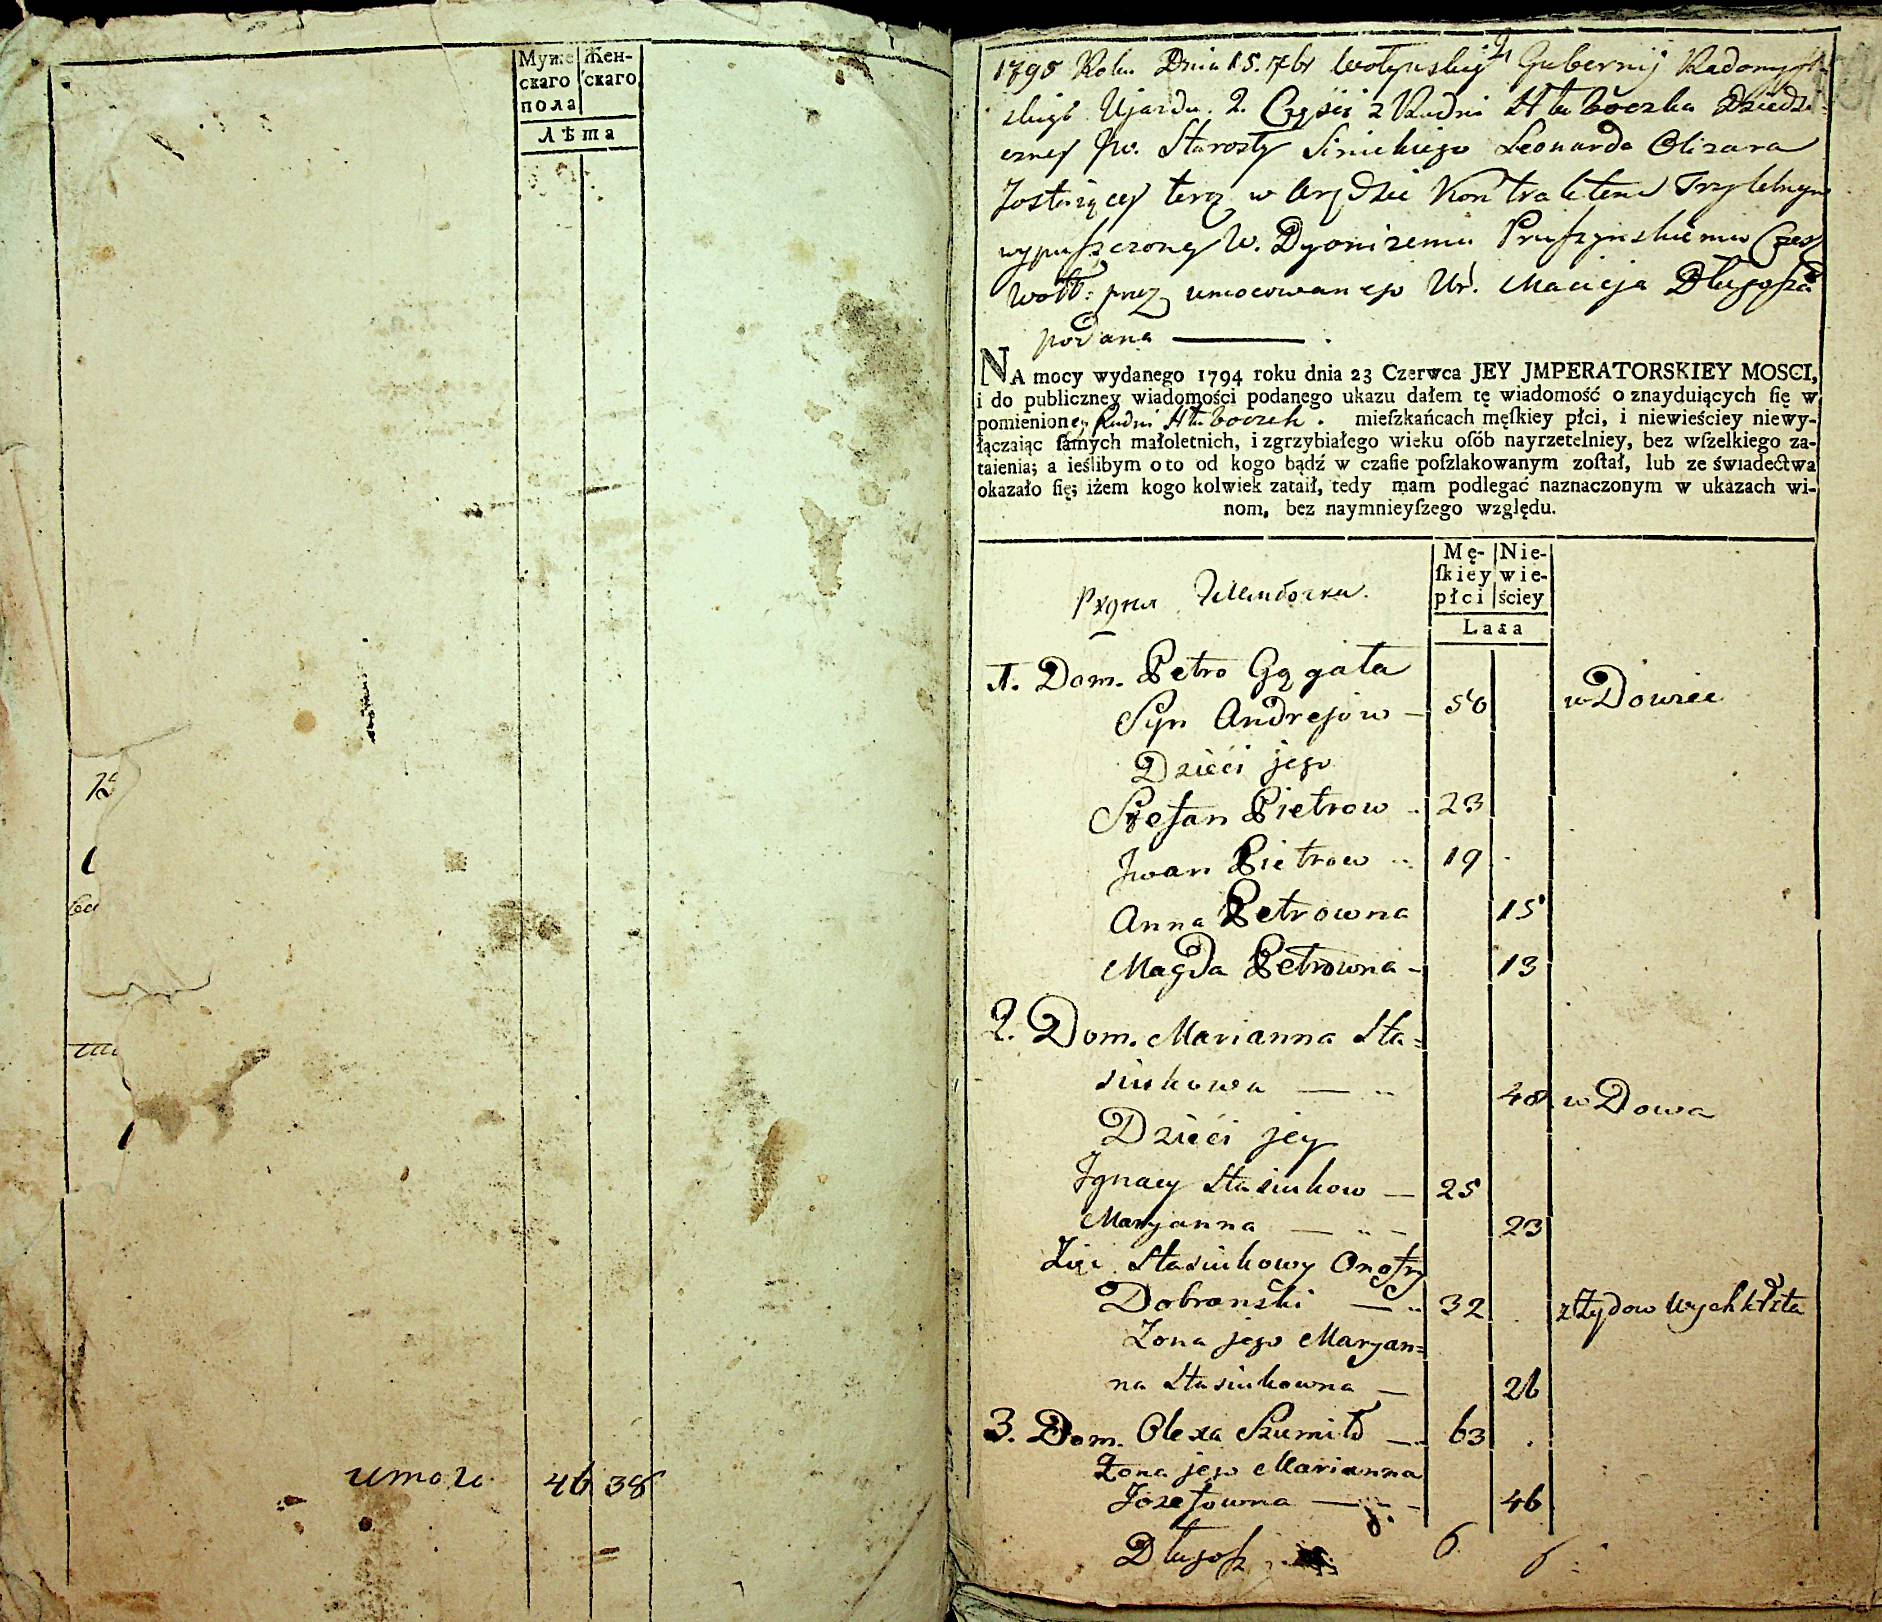 Муже
скаго
пола
Жен-
скаго
Лѣта
итого 46 38
1795 Roku Dnia 15. 7br Wołynskiey Gubernij Radomysl-
skiego Ujazdu. 2. Części z Rudni Hłuboczka Dziedzi-
czney Jw. Starosty Sinickiego Leonarda Olizara
Zostaiącey teraz w Arędzie Kontraktem Trzyletnym
wypuszczoney W. Dyonizemu Pruszynskiemu Czes
Woł: przez umocowanego Ur. Macieja Długosza
podana
NA mocy wydanego 1794 roku dnia 23 Czerwca JEY JMPERATORSKIEY MOSCI,
i do publiczney wiadomości podanego ukazu dałem tę wiadomość o znayduiących ſię w
pomienioney Rudni Hłuboczek. mieſzkańcach męſkiey płci, i niewieściey niewy-
łączaiąc ſamych małoletnich, i zgrzybiałego wieku oſób nayrzetelniey, bez wſzelkiego za-
taienia; a ieślibym oto od kogo bądź w czaſie poſzlakowanym zoſtał, lub ze świadectwa
okazało ſię; iżem kogo kolwiek zataił, tedy mam podlegać naznaczonym w ukazach wi-
nom, bez naymnieyſzego względu.
Mę-
ſkiey
płci
Nie-
wie-
ściey
Lata
1. Dom. Petro Gągała
Syn Andrejow — 56 wDowiec
Dzieći jego
Stefan Pietrow 23
Jwan Pietrow 19
Anna Petrowna 15
Magda Petrowna 13
2. Dom. Marianna Sta=
siukowa — 48 wDowa
Dzieći jey
Jgnacy Stasiukow — 25
Maryanna — 23
Zięć Stasiukowy Onofry
Dobranski — 32 z Żydow Wychkrzta
Żona jego Maryan=
na Stasiukowna — 26
3. Dom. Olexa Szumiło — 63
Żona jego Marianna
Jozefowna — 46
Długosz 6 6